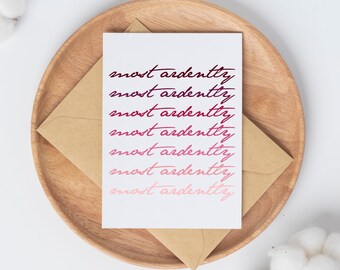 most ardently
most ardently
most ardently
most ardently
most ardently
most ardently
most ardently